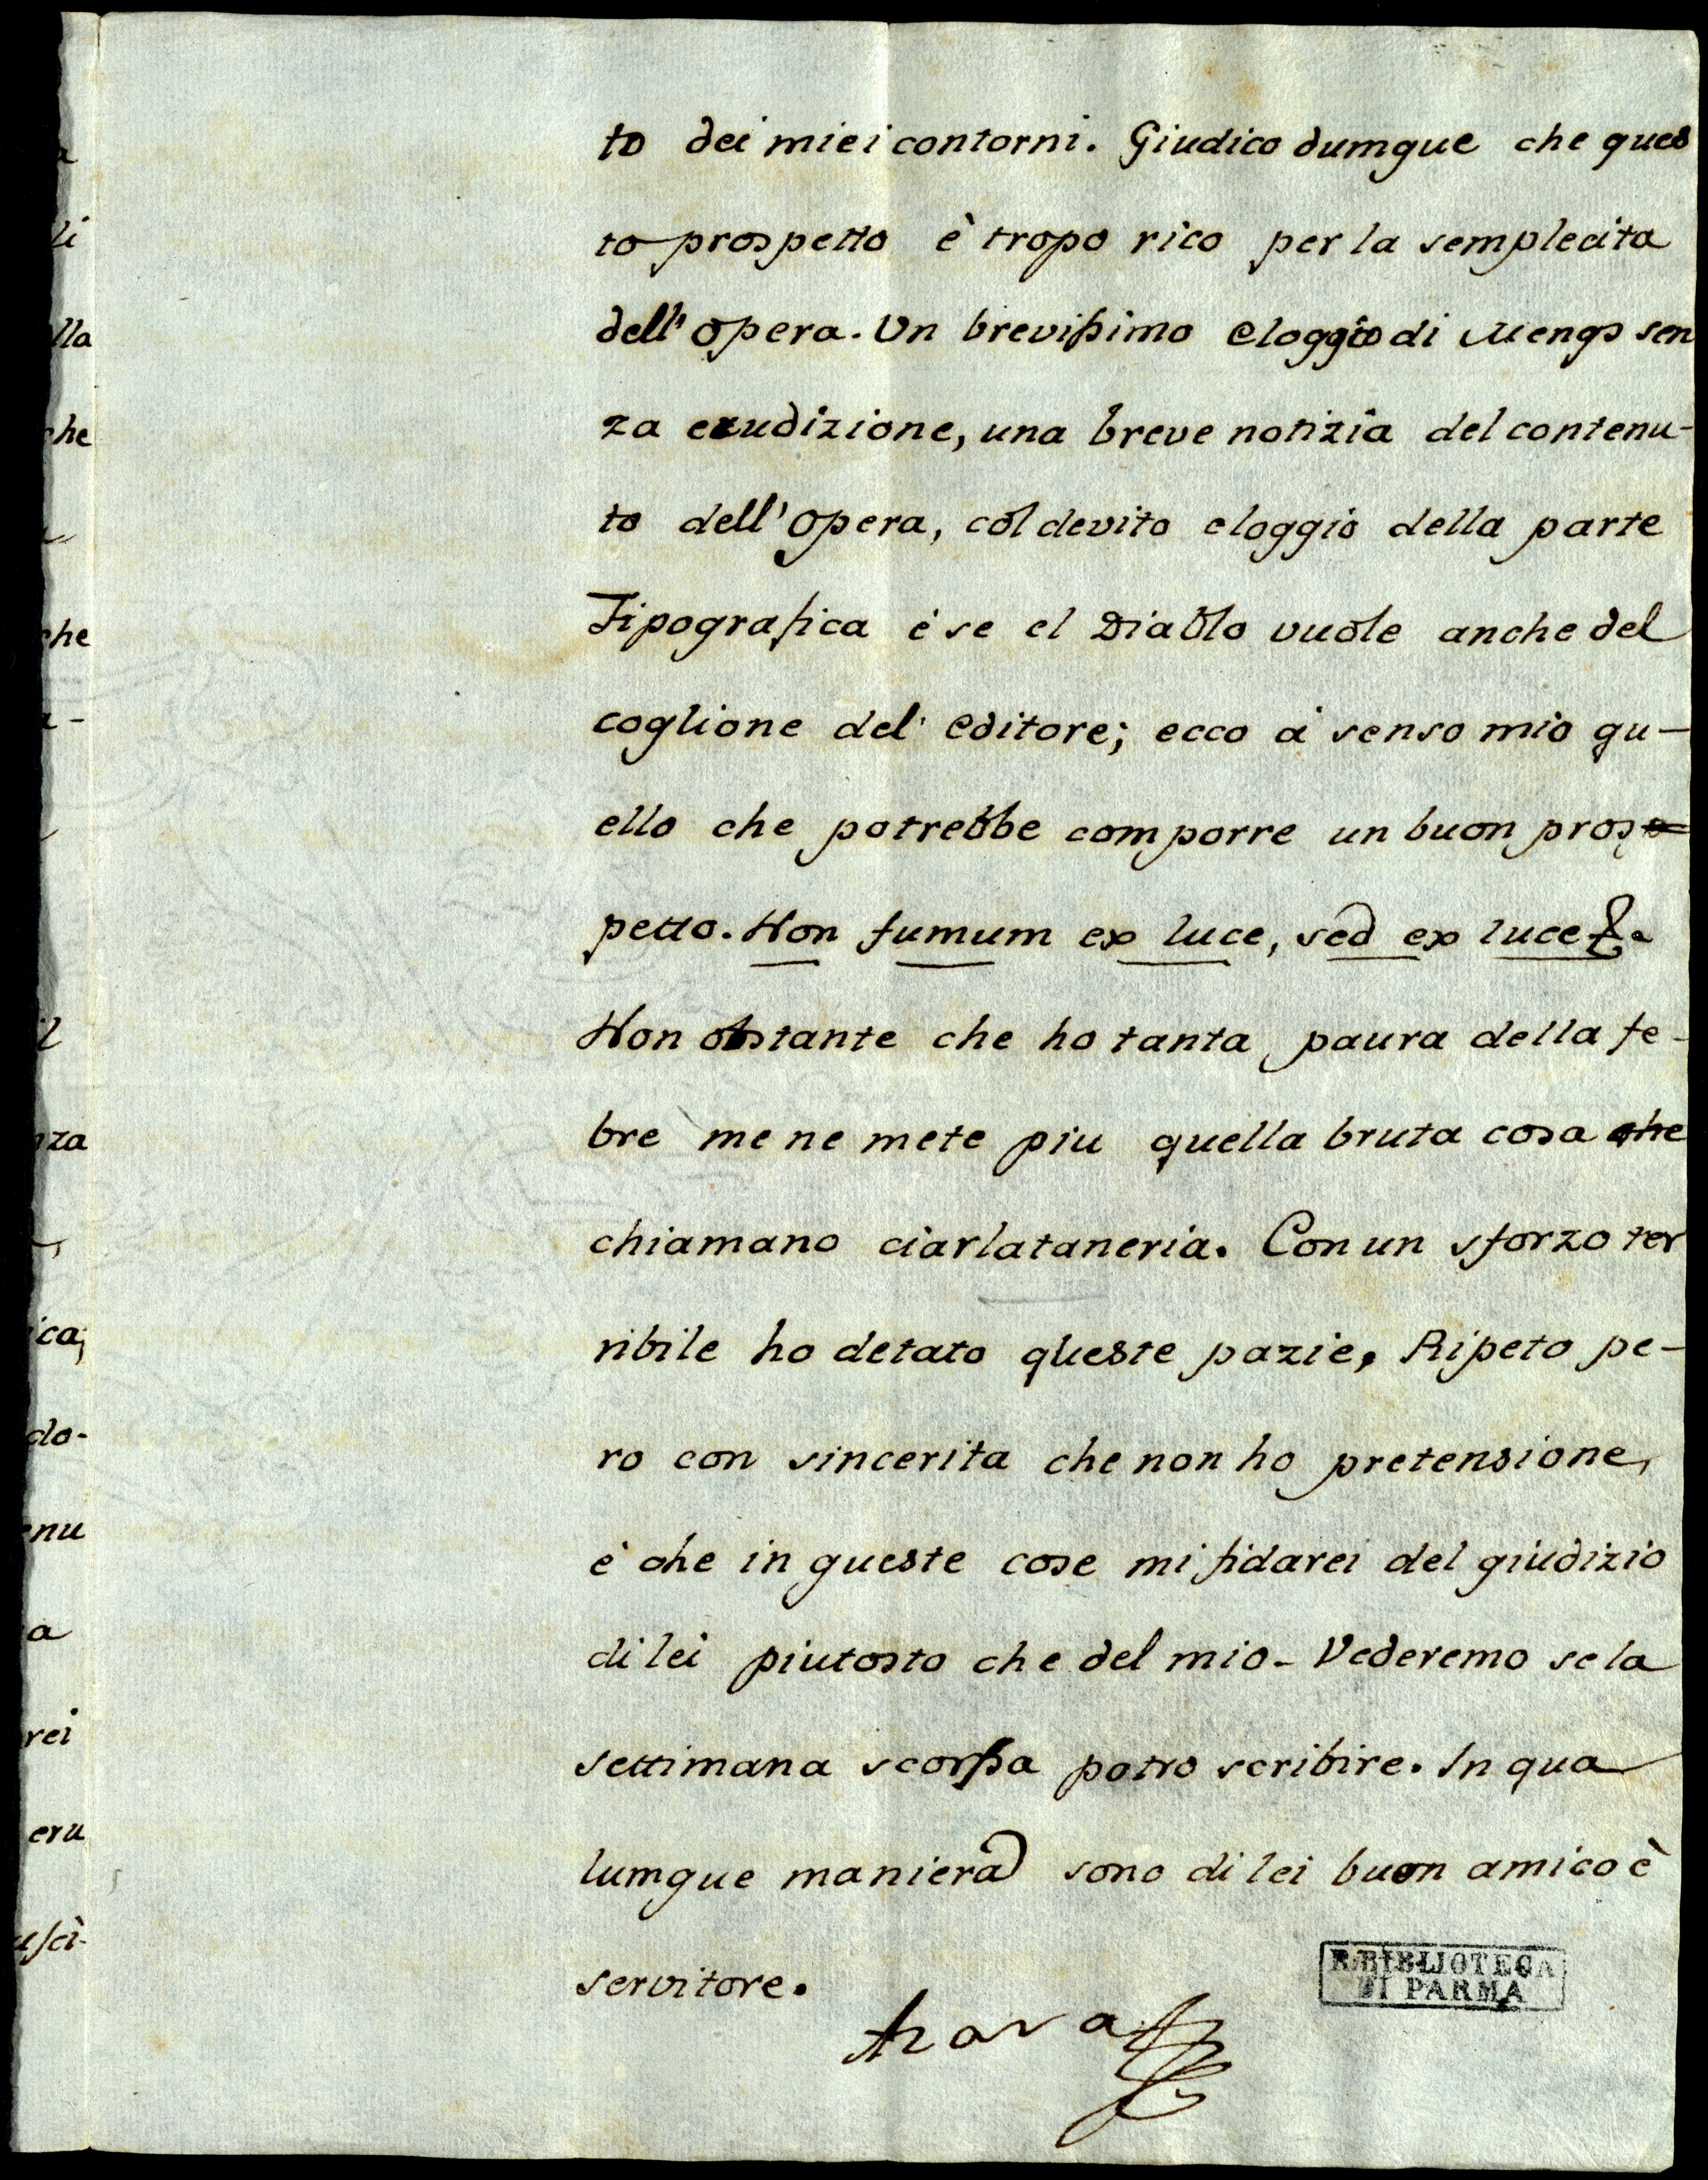 to dei miei contorni. Giudico dumque che ques
to prospetto è tropo rico per la semplecita
dell'opera. Un brevissimo eloggio di Mengs sen
za erudizione, una breve notizia del contenu-
to dell'opera, col devito eloggio della parte
Tipografica é se el Diablo vuole anche del
coglione del' editore; ecco á senso mio qu-
ello che potrebbe comporre un buon pros
petto. Non fumum ex luce, sed ex luce &.
Non obstante che ho tanta paura della fe-
bre me ne mete piu quella bruta cosa che
chiamano ciarlataneria. Con un sforzo ter
ribile ho detato queste pazie, Ripeto pe-
ro con sincerita che non ho pretensione,
è che in queste cose mi fidarei del giudizio
di lei piutosto che del mio. Vederemo se la
settimana scorssa potro scribire. In qua
lumque maniera sono di lei buon amico è
servitore.
Azara
R. BIBLIOTECA
DI PARMA
a
li
lla
che
che
a-
il
nza
ica;
do-
enu
a
rei
eru
usci-